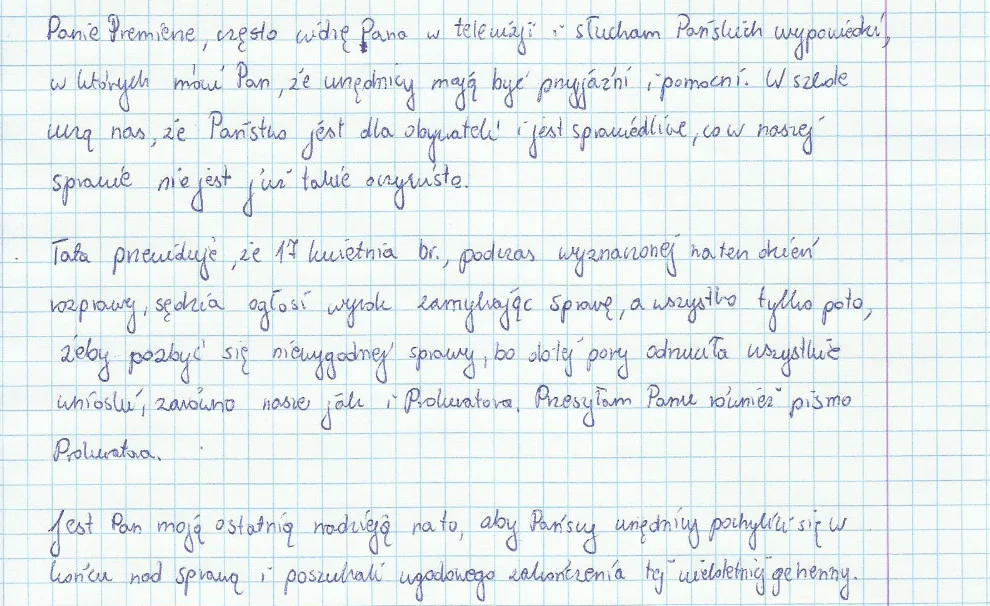 Panie Premierze, często widzę Pana w telewizji i słucham Pańskich wypowiedzi,
w których mówi Pan, że urzędnicy mają być przyjaźni i pomocni. W szkole
uczą nas, że Państwo jest dla obywateli i jest sprawiedliwe, co w naszej
sprawie nie jest już takie oczywiste.
Tata przewiduje, że 17 kwietnia br., podczas wyznaczonej na ten dzień
rozprawy, sędzia ogłosi wyrok zamykając sprawę, a wszystko tylko poto,
żeby pozbyć się niewygodnej sprawy, bo do tej pory odrzuciła wszystkie
wnioski, zarówno nasze jak i Prokuratora. Przesyłam Panu również pismo
Prokuratora.
Jest Pan moją ostatnią nadzieją na to, aby Pańscy urzędnicy pochylili się w
końcu nad sprawą i poszukali ugodowego zakończenia tej wieloletniej gehenny.